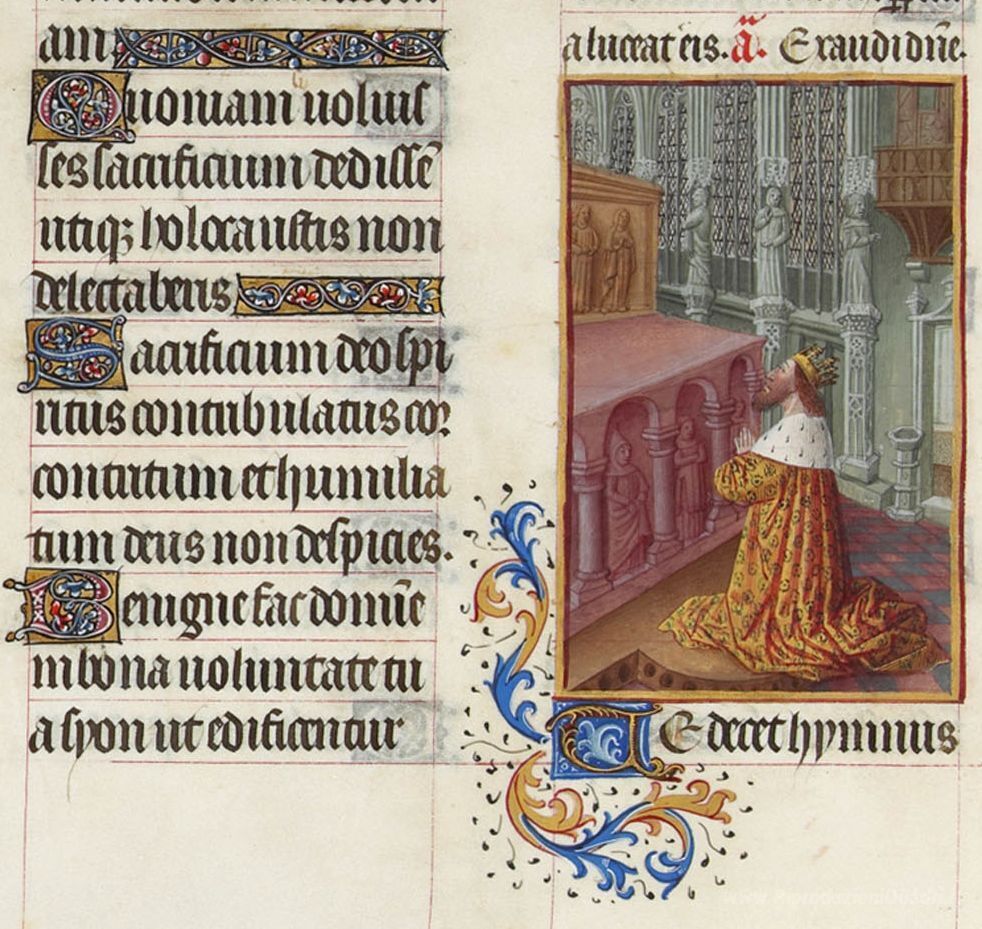 am.
Quoniam voluis
ses sacrificium dedissē
utiq; holocaustis non
delectaberis
Sacrificium deo spi
ritus contribulatus cor
contritum et humilia
tum deus non despicies.
Benigne fac domīe
in bona voluntate tu
a syon ut edificentur
a luceat eis. ā. Exaudi dn̄e.
TE decet hymnus